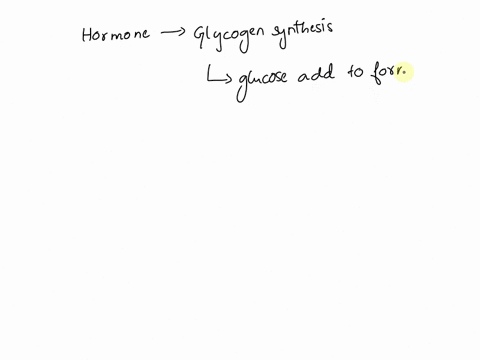 Hormone → Glycogen synthesis
↳ glucose add to forr